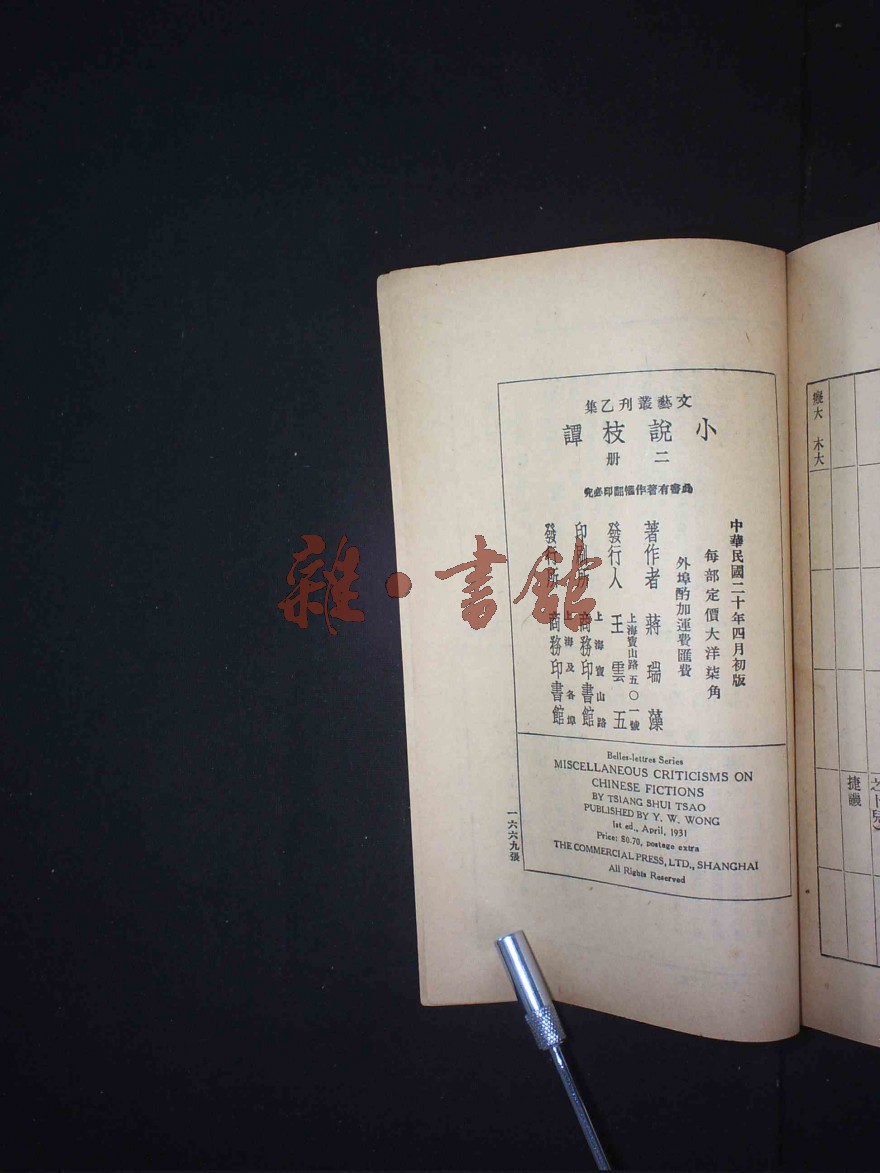 文藝叢刊乙集
小說枝譚
二册
此書有著作權翻印必究
中華民國二十年四月初版
每部定價大洋柒角
外埠酌加運費匯費
著作者 蔣瑞藻
發行人 王雲五
上海寶山路五〇一號
印刷所 商務印書館
上海寶山路
發行所 商務印書館
上海及各埠
Belles-lettres Series
MISCELLANEOUS CRITICISMS ON
CHINESE FICTIONS
BY TSIANG SHUI TSAO
PUBLISHED BY Y. W. WONG
1st ed., April, 1931
Price: $0.70, postage extra
THE COMMERCIAL PRESS, LTD., SHANGHAI
All Rights Reserved
一六六九張
癡大 木大
捷譏
雜·書館